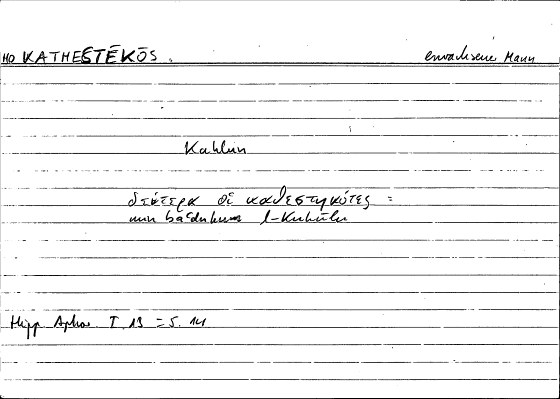 HO KATHESTĒKŌS. erwachsene Mann
Kahlun
δεύτερα οἱ καθεστηκότες =
min ba'dihim l-Kuhūlu
Hipp Aphor. I 13 = S. 14